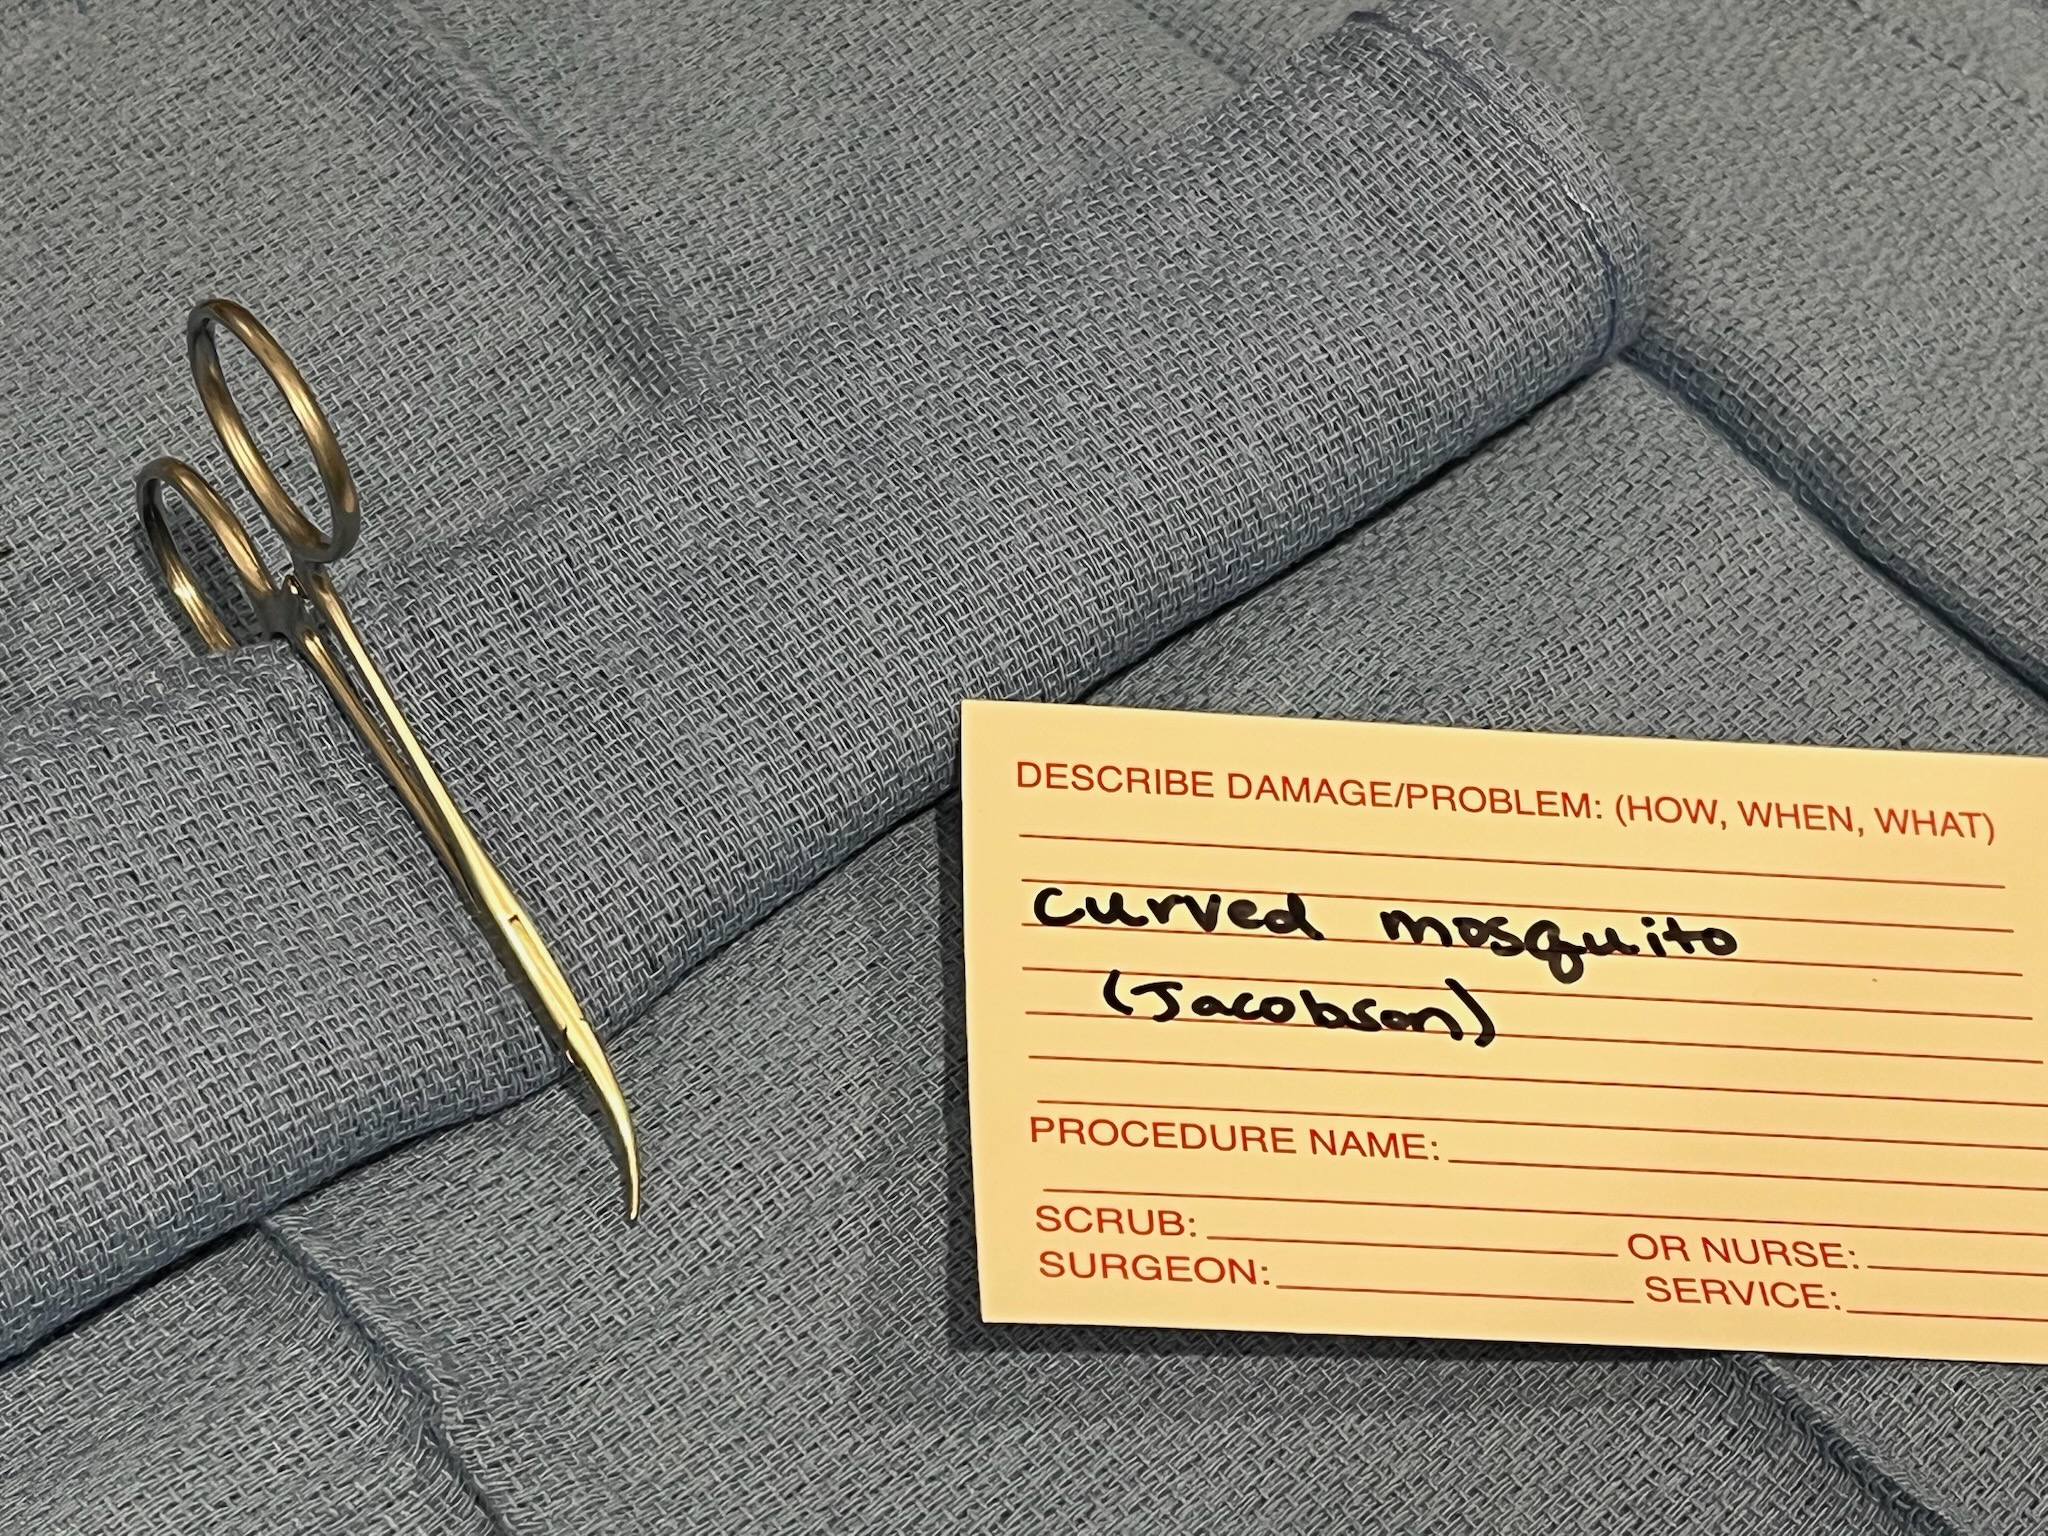 DESCRIBE DAMAGE/PROBLEM: (HOW, WHEN, WHAT)
curved mosquito
(Jacobson)
PROCEDURE NAME:
SCRUB: OR NURSE:
SURGEON: SERVICE: